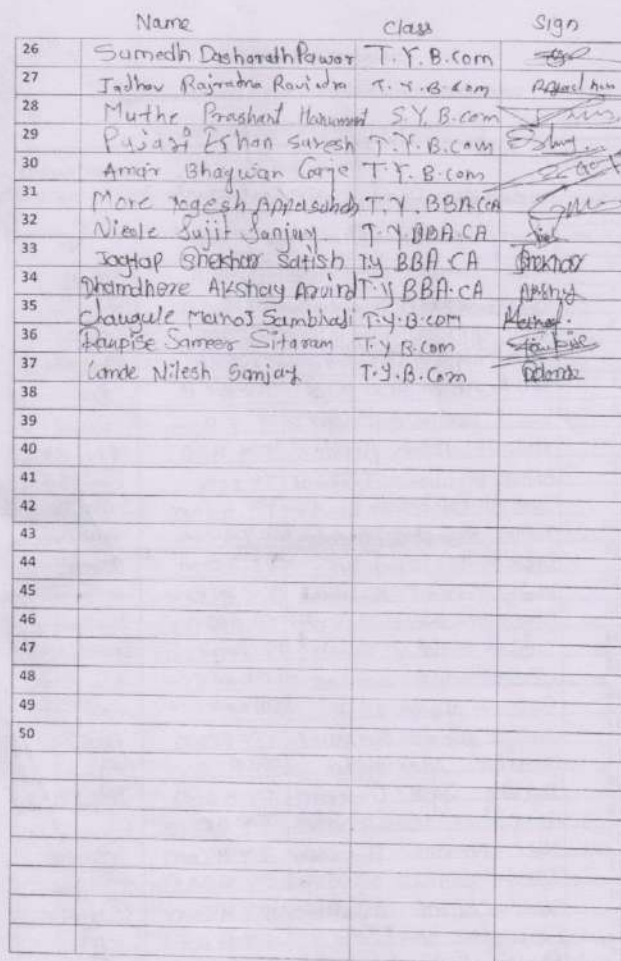 Name Class Sign
26 Sumedh Dasharath Pawar T.Y.B.com
27 Jadhav Rajratna Ravindra T.Y.B.com
28 Muthe Prashant Hanumant S.Y.B.com
29 Pujari Eshan Suresh T.Y.B.com
30 Amar Bhagwan Garje T.Y.B.com
31 More Yogesh Appasaheb T.Y.BBA.CA
32 Sujit Sanjay T.Y.BBA.CA
33 Jagtap Shekhar Satish TY BBA.CA Shekhar
34 Dhamdhere Akshay Arvind T.Y BBA.CA Akshay
35 Chaugule Manoj Sambhaji T.Y.B.com Manoj.
36 Raupise Sameer Sitaram T.Y B.com
37 Lande Nilesh Sanjay T.Y.B.Com
38
39
40
41
42
43
44
45
46
47
48
49
50